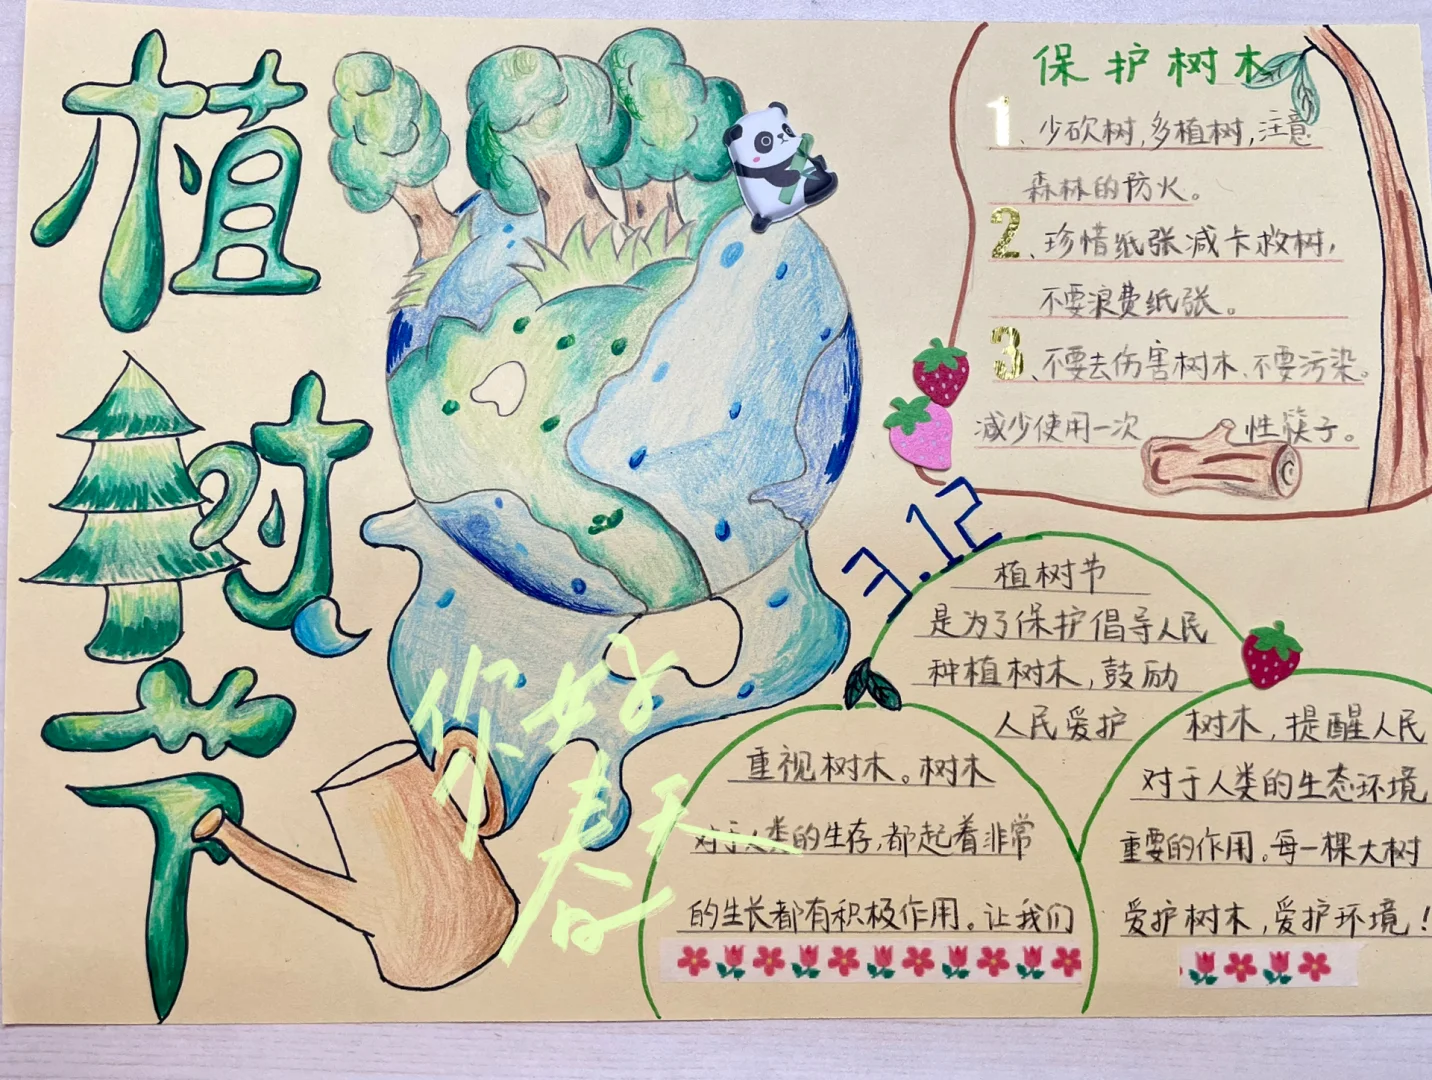 植
树
节
保护树木
1、少砍树,多植树,注意
森林的防火。
2、珍惜纸张减卡救树,
不要浪费纸张。
3、不要去伤害树木、不要污染。
减少使用一次 性筷子。
3.12
植树节
是为了保护倡导人民
种植树木,鼓励
人民爱护 树木,提醒人民
重视树木。树木 对于人类的生态环境
对于人类的生存,都起着非常 重要的作用。每一棵大树
的生长都有积极作用。让我们 爱护树木,爱护环境!
你好
春天